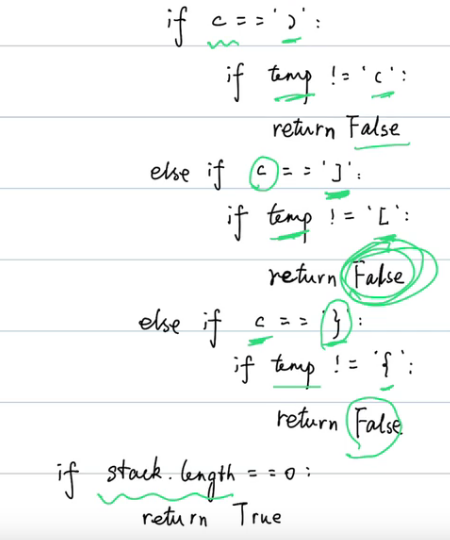 if c == ')':
if temp != '(':
return False
else if c == ']':
if temp != '[':
return False
else if c == '}':
if temp != '{':
return False
if stack.length == 0:
return True